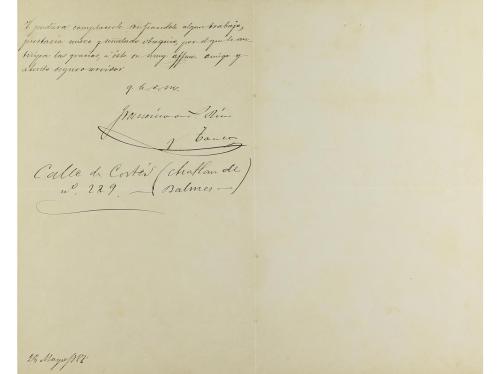 V. pudiera complacerle confiandole algun trabajo,
prestaria nuevo y señalado obsequio, por el que le an-
ticipa las gracias, a este su muy affmo. amigo y
atento seguro servidor
q. b. s. m.
Tanco
Calle de Cortés (chaflan de
nº. 229. — Balmes —
24 Mayo/88